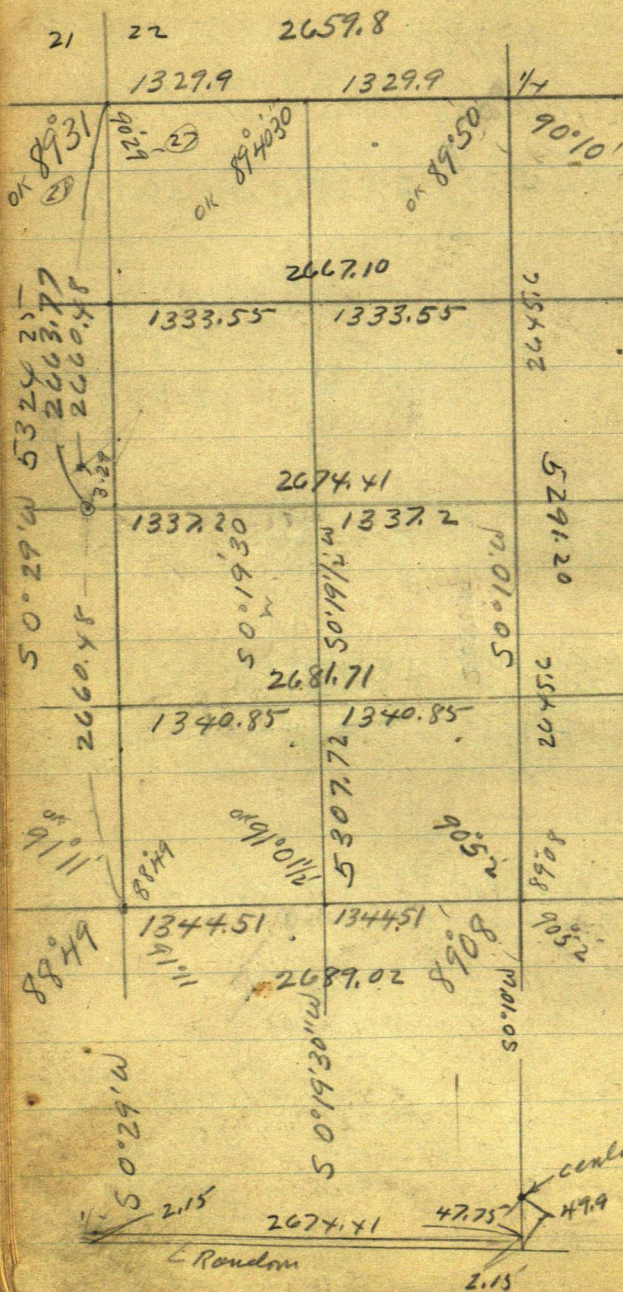 21 22 2659.8
1329.9 1329.9 1/4
OK 89°31' 90°29' 27 OK 89°40'30" OK 89°50' 90°10'
28
2667.10
1333.55 1333.55
S 0°29'W 5324.25
2663.77
2660.48
2645.6
3.29
2674.41
1337.20 1337.2
S0°19'30 W
S0°19 1/2'W
S0°10'W
5291.20
2660.48
2681.71
1340.85 1340.85
2645.6
5307.72
OK 91°11'
88°49
OK
90°52'
89°08
88°49
1344.51 1344.51
91°11
2689.02
89°08'
90°52'
S0°10'W
S 0°29'W
S 0°19'30"W
2.15
2674.41
47.75
49.9
Random
2.15